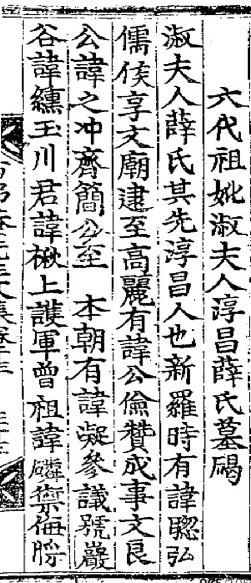 六代祖妣淑夫人淳昌薛氏墓碣
淑夫人薛氏其先淳昌人也新羅時有諱聦弘
儒侯享文廟逮至高麗有諱公儉贊成事文良
公諱之冲齊簡公至 本朝有諱凝參議號嚴
谷諱纁玉川君諱楸上護軍曾祖諱磷禦侮將